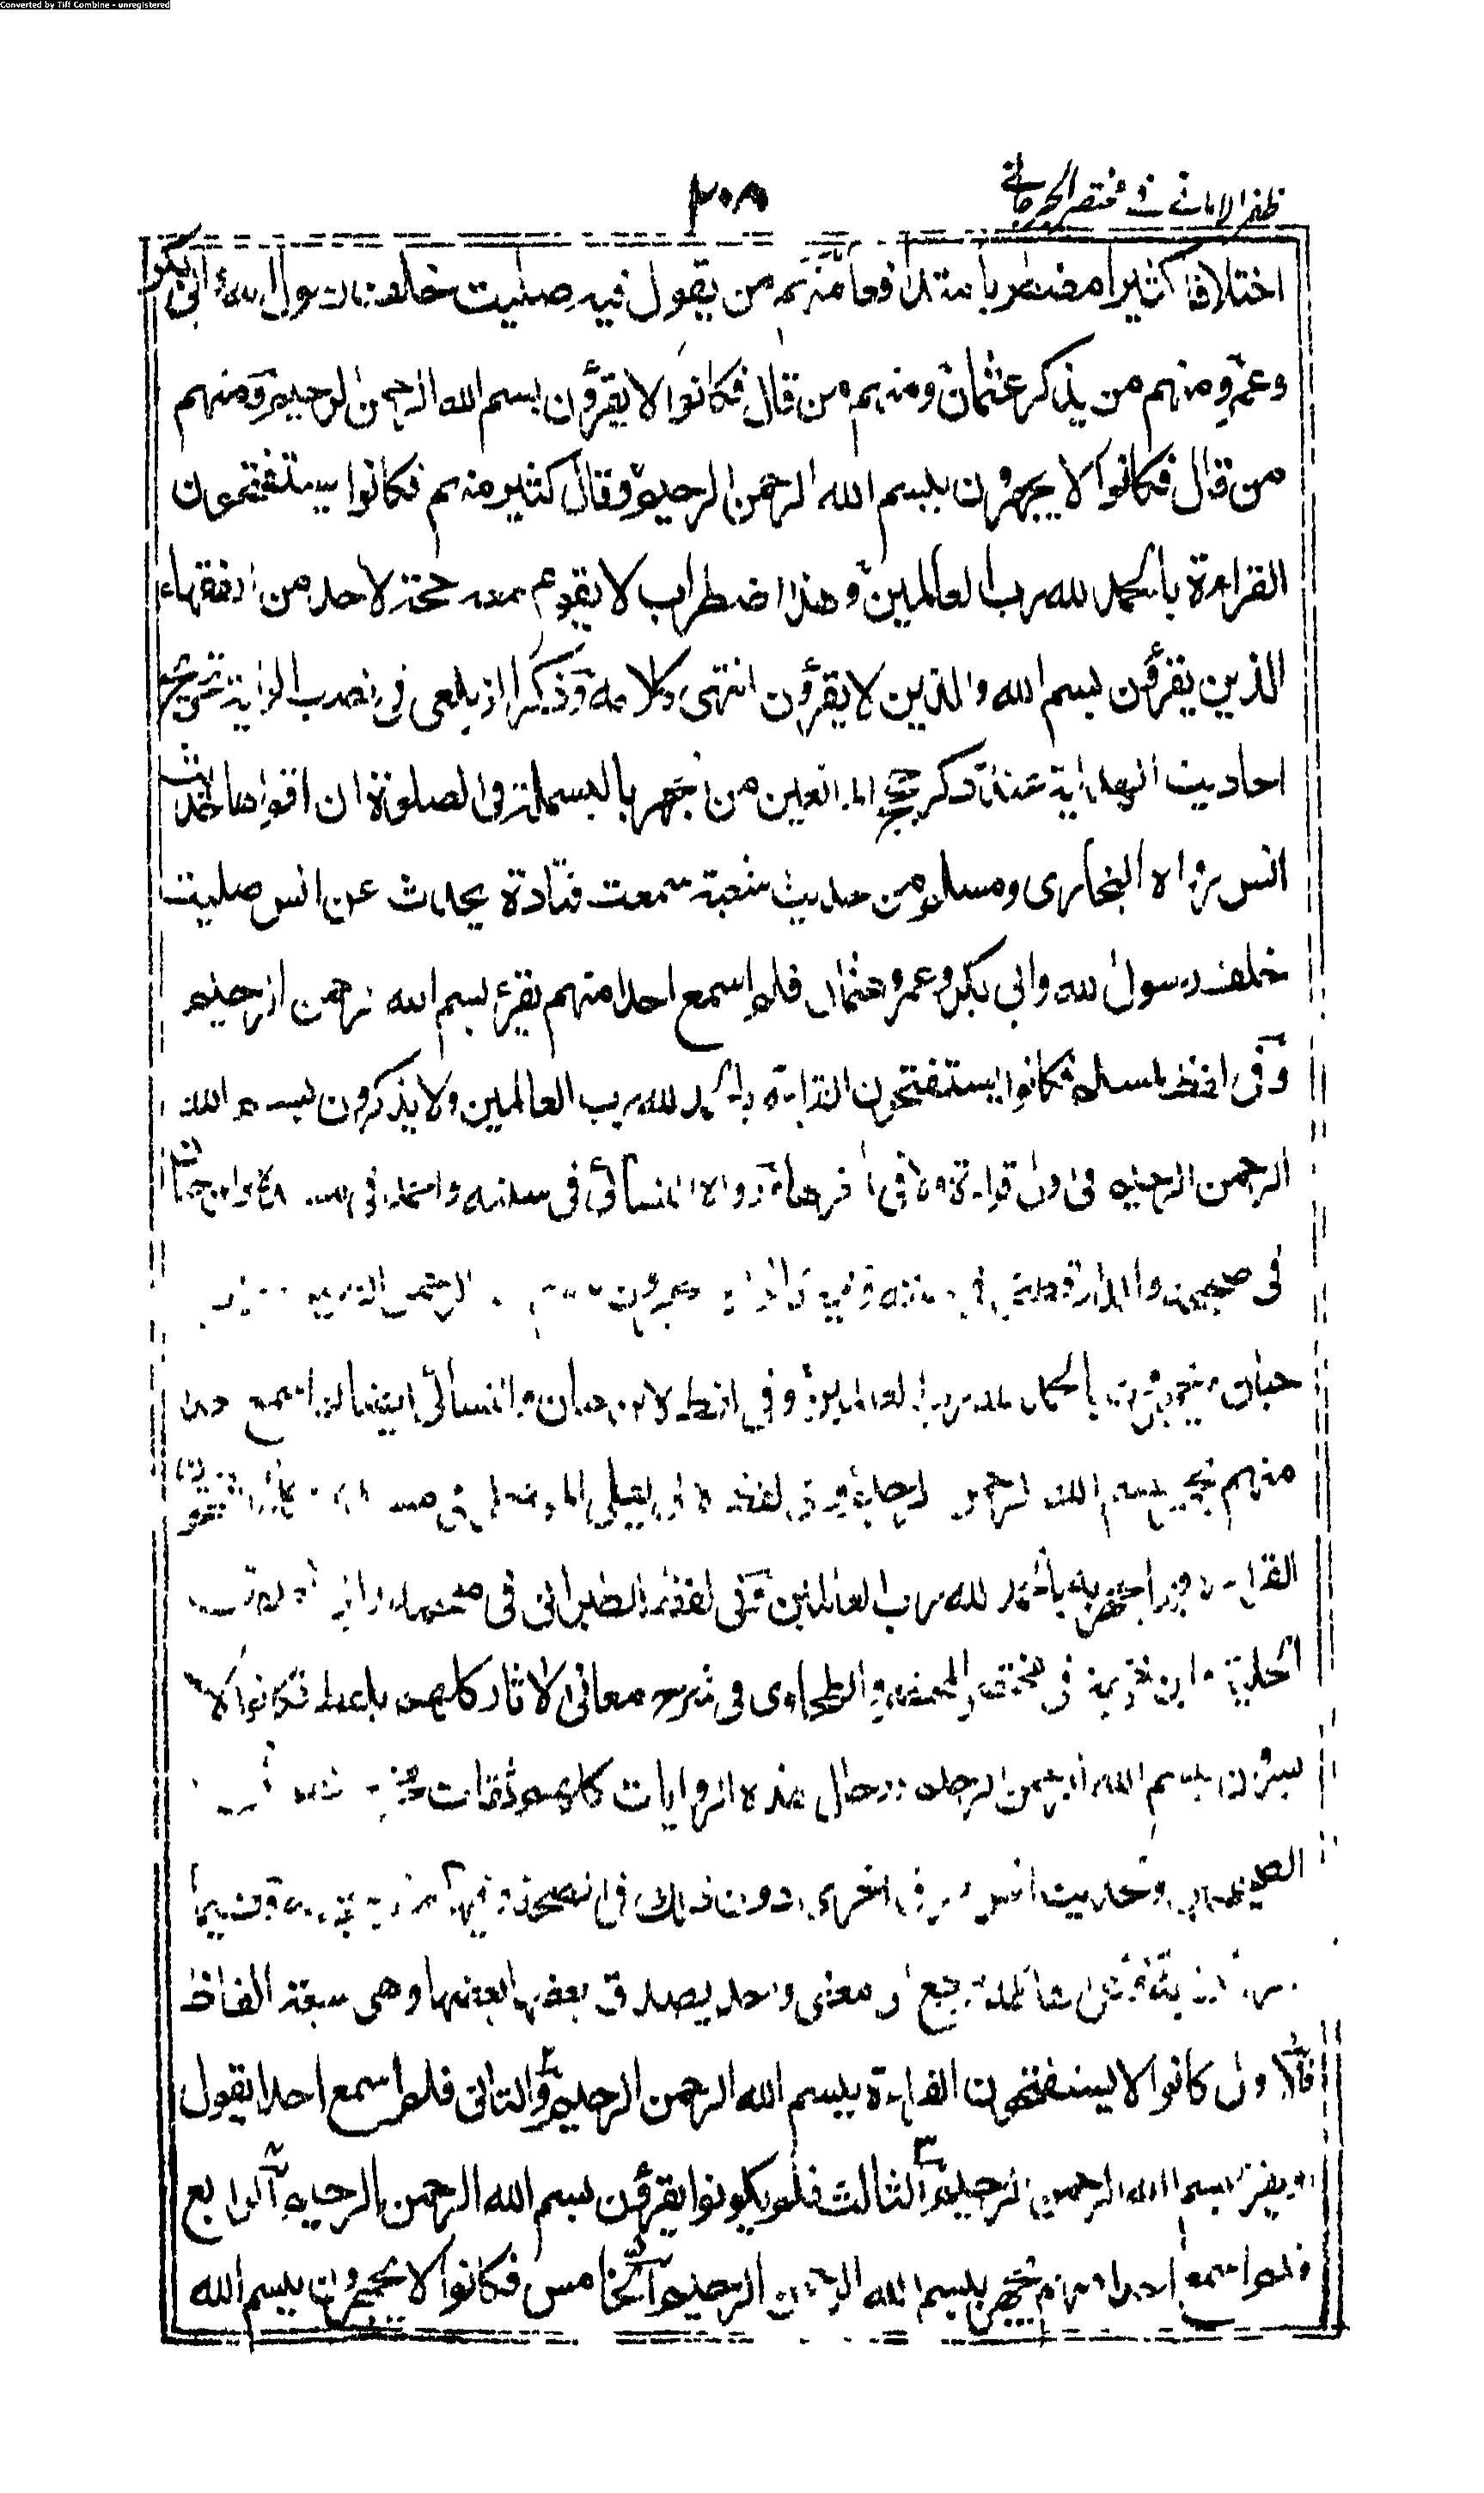 Converted by Tiff Combine - unregistered
ظفر الاماني في مختصر الجرجاني
٢٠٨
اختلافا كثيرا مضطربا متدافعا منهم من يقول فيه صليت خلف رسول الله وابي بكر
وعمر ومنهم من يذكر عثمان ومنهم من قال فكانوا لا يقرؤن بسم الله الرحمن الرحيم ومنهم
من قال فكانوا لا يجهرون ببسم الله الرحمن الرحيم وقال كثير منهم فكانوا يستفتحون
القراءة بالحمد لله رب العالمين وهذا اضطراب لا يقوم معه حجة لاحد من الفقهاء
الذين يقرؤن بسم الله والذين لا يقرؤن انتهى كلامه وذكر الزيلعى فى نصب الراية تخريج
احاديث الهداية عند ذكر حجج المانعين من الجهر بالبسملة فى الصلوة ان اقواها حديث
انس رواه البخارى ومسلم من حديث شعبة سمعت قتادة يحدث عن انس صليت
خلف رسول الله وابي بكر وعمر وعثمان فلم اسمع احدا منهم يقرء بسم الله الرحمن الرحيم
وفى لفظ لمسلم فكانوا يستفتحون القراءة بالحمد لله رب العالمين ولا يذكرون بسم الله
الرحمن الرحيم فى اول قراءة ولا فى اخرها ورواه النسائى فى سننه واحمد فى مسنده وابن حبان
فى صحيحه والدارقطنى فى سننه
حبان ويجهرون بالحمد لله رب العالمين وفى لفظ لابن حبان والنسائى ايضا لم اسمع احدا
منهم يجهر ببسم الله الرحمن الرحيم وفى لفظ لابى يعلى الموصلى فى مسنده
القراءة فيما يجهر به بالحمد لله رب العالمين وفى لفظ للطبرانى فى معجمه وابى نعيم فى
الحلية وابن خزيمة فى مختصر المختصر والطحاوى فى شرح معانى الاثار
فكانوا لا
يسرون ببسم الله الرحمن الرحيم ورجال هذه الروايات كلهم ثقات
الصحيحين وحديث انس
ترجع الى معنى واحد يصدق بعضها بعضها وهى سبعة الفاظ
فالاول كانوا لا يستفتحون القراءة ببسم الله الرحمن الرحيم والثانى فلم اسمع احدا يقول
او يقرء بسم الله الرحمن الرحيم الثالث فلم يكونوا يقرؤن بسم الله الرحمن الرحيم الرابع
فلم اسمع احدا منهم يجهر ببسم الله الرحمن الرحيم الخامس فكانوا لا يجهرون ببسم الله